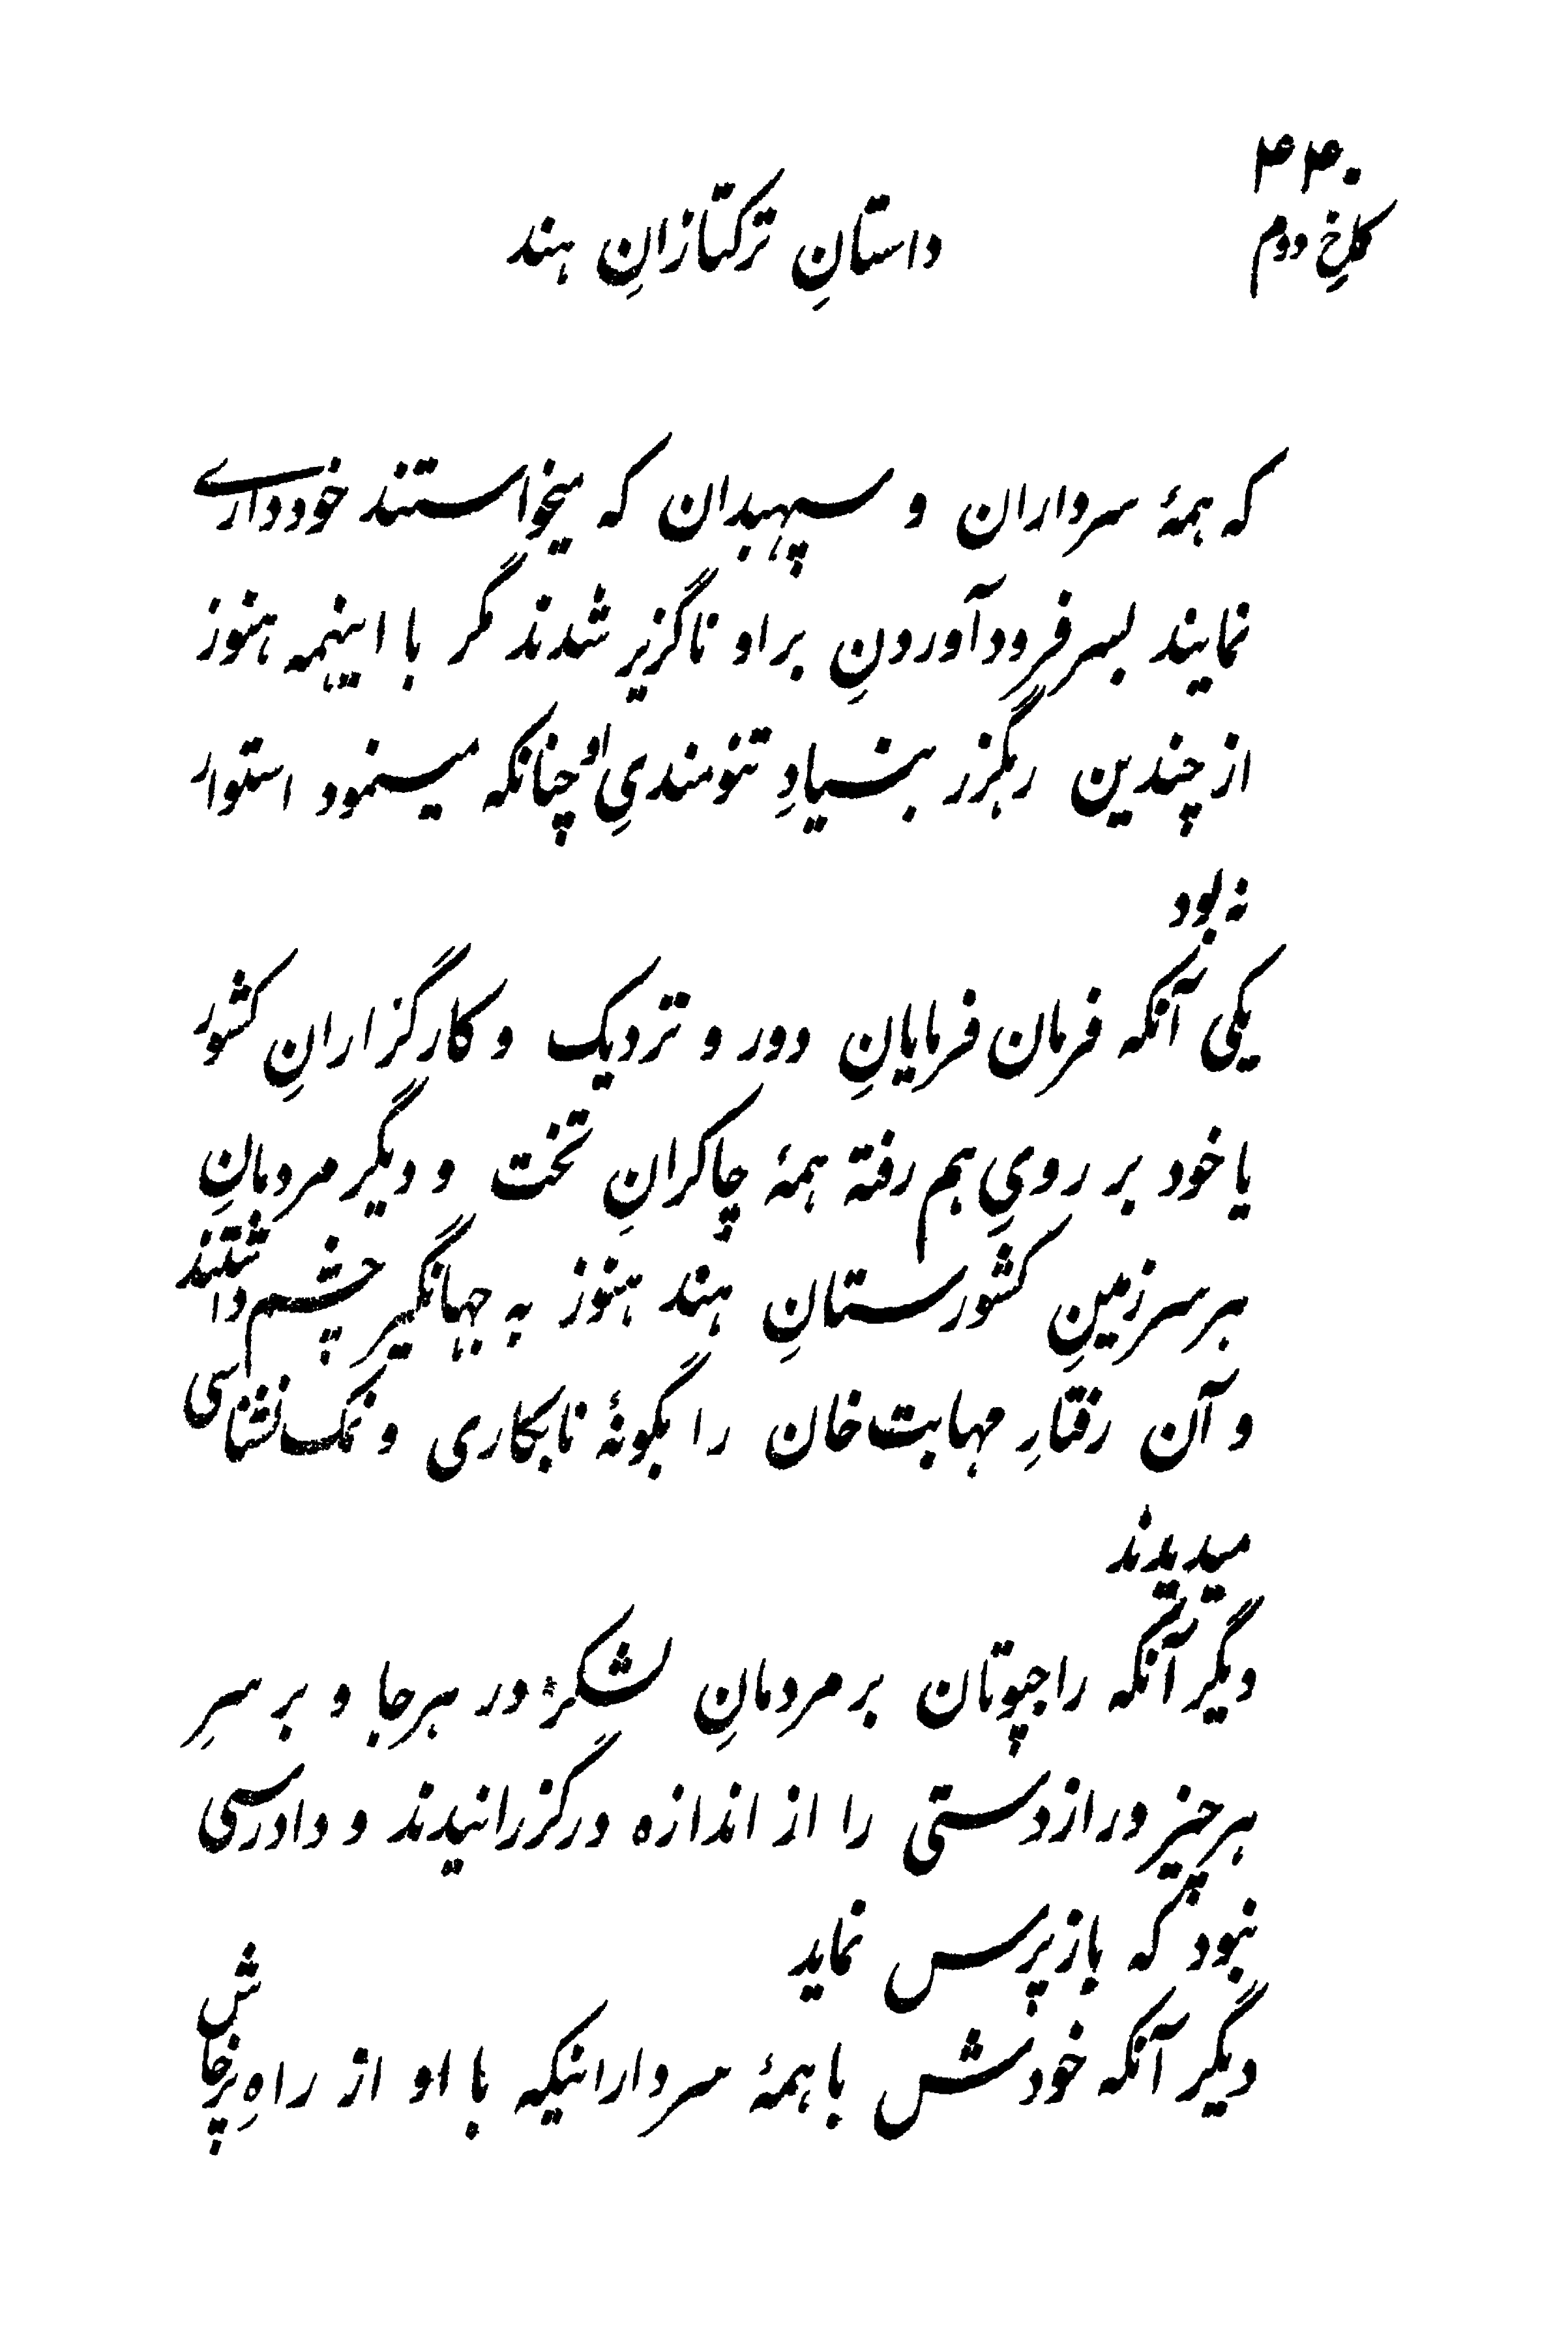 ۴۴۰
کاخِ دوم
داستانِ ترکتازانِ هند
که همهٔ سرداران و سپهبدان که میخواستند خودداری
نمایند بسر فرود آوردنِ بر او ناگزیر شدند مگر با اینهمه هنوز
از چندین رهگزر بنیادِ تنومندیِ او چنانکه مینمود استوار
نه بود
یکی آنکه فرمان فرمایانِ دور و نزدیک و کارگزارانِ کشور
یا خود بر رویِ هم رفته همهٔ چاکرانِ تخت و دیگر مردمانِ
هر سرزمینِ کشورستانِ هند هنوز به جهانگیر چشم داشتند
و آن رفتارِ مهابت خان را بگونهٔ نابکاری و نمک نشناسی
میدیدند
دیگر آنکه راجپوتان بر مردمانِ لشکر در هر جا و بر سرِ
هر چیز درازدستی را از اندازه درگزرانیدند و دادرسی
نبود که بازپرس نماید
دیگر آنکه خودش با همهٔ سردارانیکه با او از راهِ پرخاش